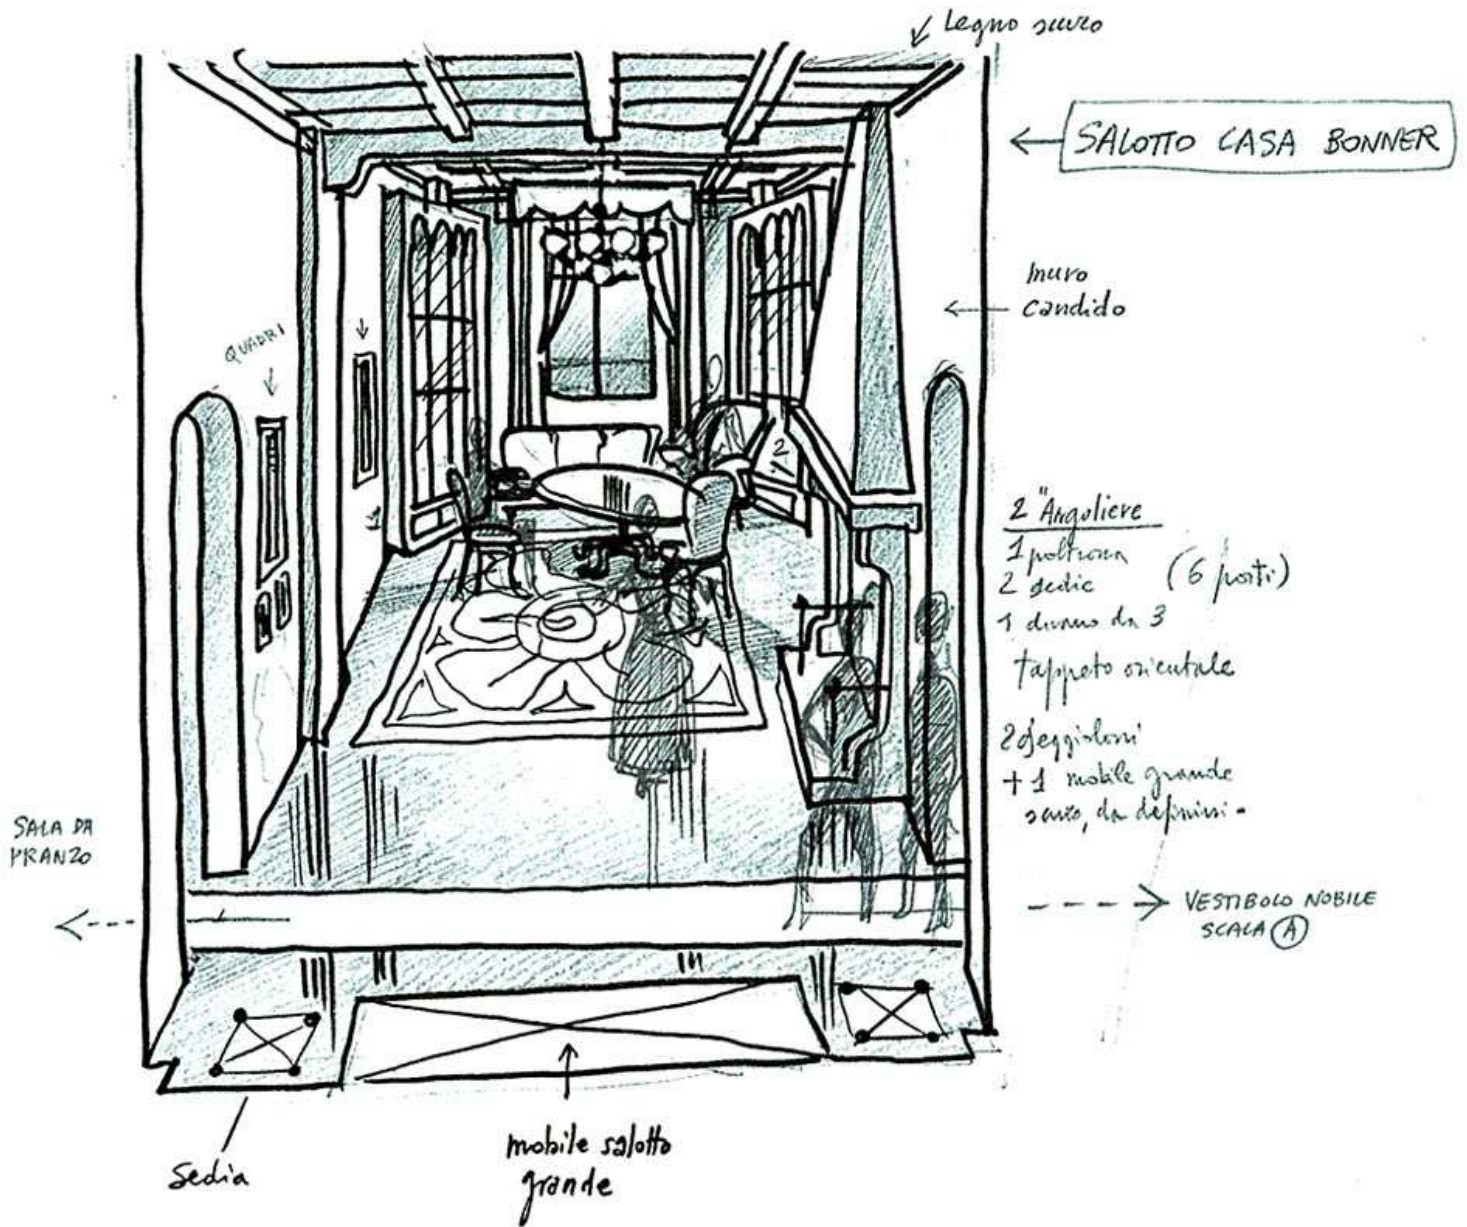 Legno scuro
SALOTTO CASA BONNER
muro
candido
QUADRI
1
2
2 "Angoliere
1 poltrona
2 sedie (6 posti)
1 divano da 3
tappeto orientale
2 seggioloni
+ 1 mobile grande
scuro, da definirsi -
SALA DA
PRANZO
VESTIBOLO NOBILE
SCALA A
Sedia
mobile salotto
grande